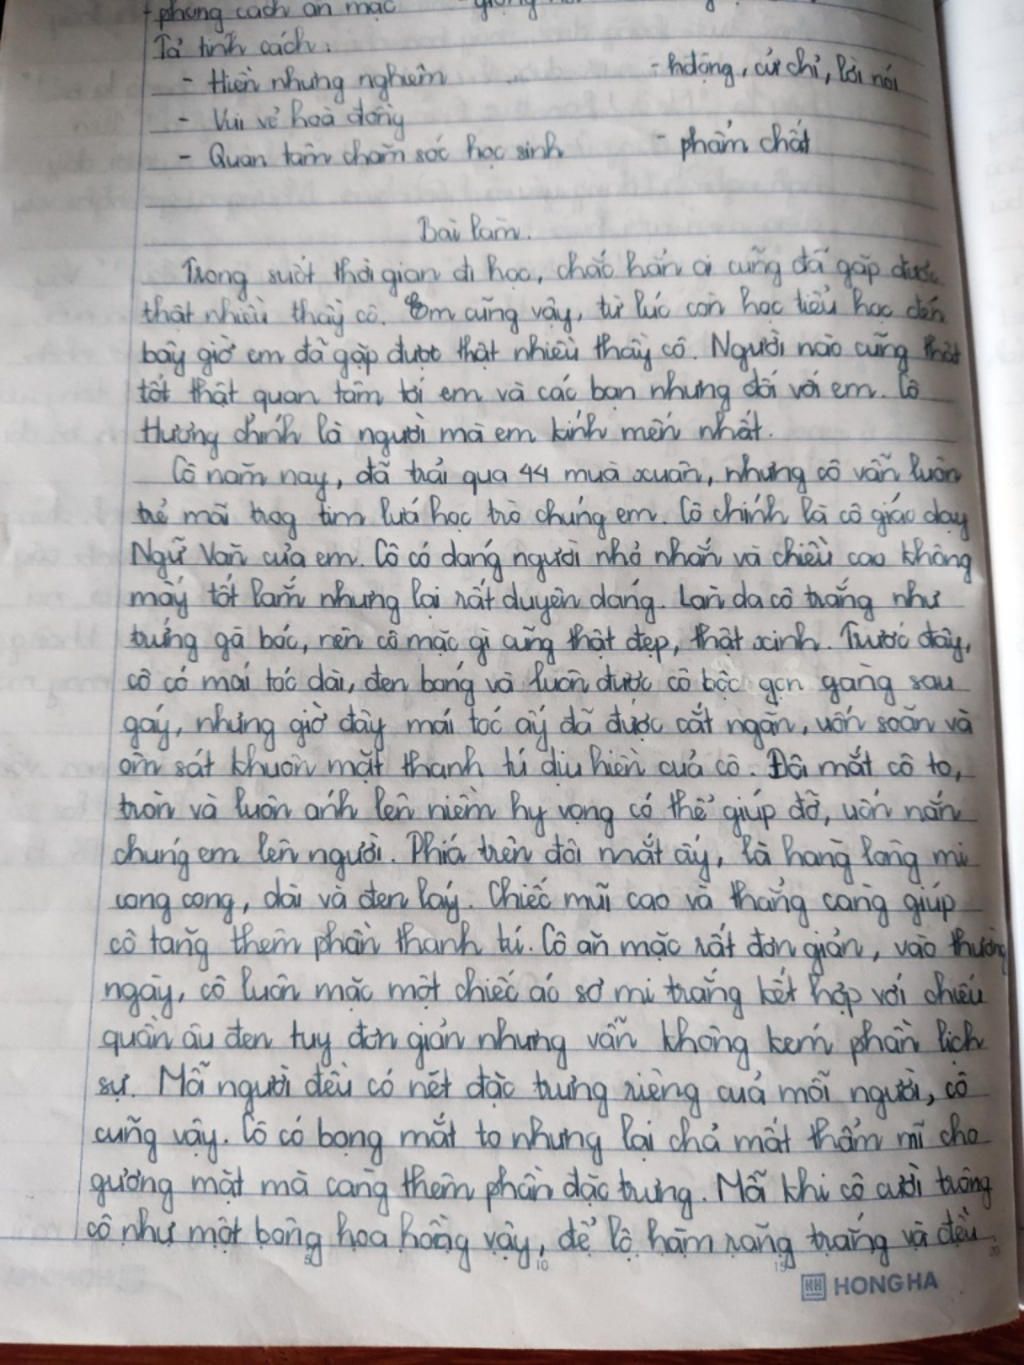 - phong cách ăn mặc
Tả tính cách:
- Hiền nhưng nghiêm - hđộng, cử chỉ, lời nói
- Vui vẻ hoà đồng
- Quan tâm chăm sóc học sinh - phẩm chất
Bài làm.
Trong suốt thời gian đi học, chắc hẳn ai cũng đã gặp được
thật nhiều thầy cô. Em cũng vậy, từ lúc còn học tiểu học đến
bây giờ em đã gặp được thật nhiều thầy cô. Người nào cũng thật
tốt thật quan tâm tới em và các bạn nhưng đối với em. Cô
Hương chính là người mà em kính mến nhất.
Cô năm nay, đã trải qua 44 mùa xuân, nhưng cô vẫn luôn
trẻ mãi trog tim lứa học trò chúng em. Cô chính là cô giáo dạy
Ngữ Văn của em. Cô có dáng người nhỏ nhắn và chiều cao không
mấy tốt lắm nhưng lại rất duyên dáng. Làn da cô trắng như
trứng gà bóc, nên cô mặc gì cũng thật đẹp, thật xinh. Trước đây,
cô có mái tóc dài, đen bóng và luôn được cô bộc gọn gàng sau
gáy, nhưng giờ đây mái tóc ấy đã được cắt ngắn, uốn soăn và
ôm sát khuôn mặt thanh tú dịu hiền của cô. Đôi mắt cô to,
tròn và luôn ánh lên niềm hy vọng có thể giúp đỡ, uốn nắn
chúng em lên người. Phía trên đôi mắt ấy, là hàng lông mi
cong cong, dài và đen láy. Chiếc mũi cao và thẳng càng giúp
cô tăng thêm phần thanh tú. Cô ăn mặc rất đơn giản, vào thường
ngày, cô luôn mặc một chiếc áo sơ mi trắng kết hợp với chiếu
quần âu đen tuy đơn giản nhưng vẫn không kém phần lịch
sự. Mỗi người đều có nét đặc trưng riêng của mỗi người, cô
cũng vậy. Cô có bọng mắt to nhưng lại chả mất thẩm mĩ cho
gương mặt mà càng thêm phần đặc trưng. Mỗi khi cô cười trông
cô như một bông hoa hồng vậy, để lộ hàm răng trắng và đều
5 10 15 20
HH HONG HA